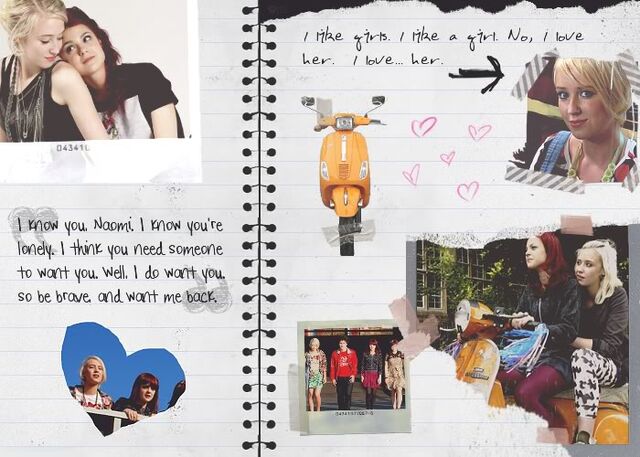 I like girls. I like a girl. No, I love
her. I love... her.
043410
I know you, Naomi. I know you're
lonely. I think you need someone
to want you. Well, I do want you,
so be brave, and want me back.